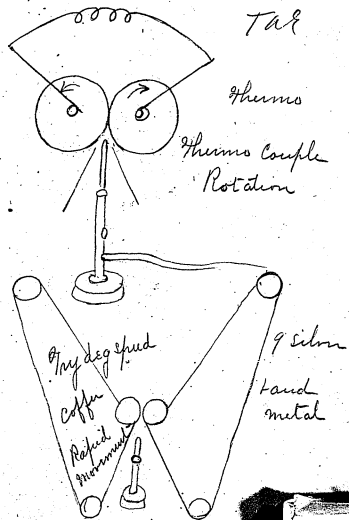 TAE
Thermo
Thermo Couple
Rotation
Try deg speed
Coffer
Rapid
movement
g silver
band
metal